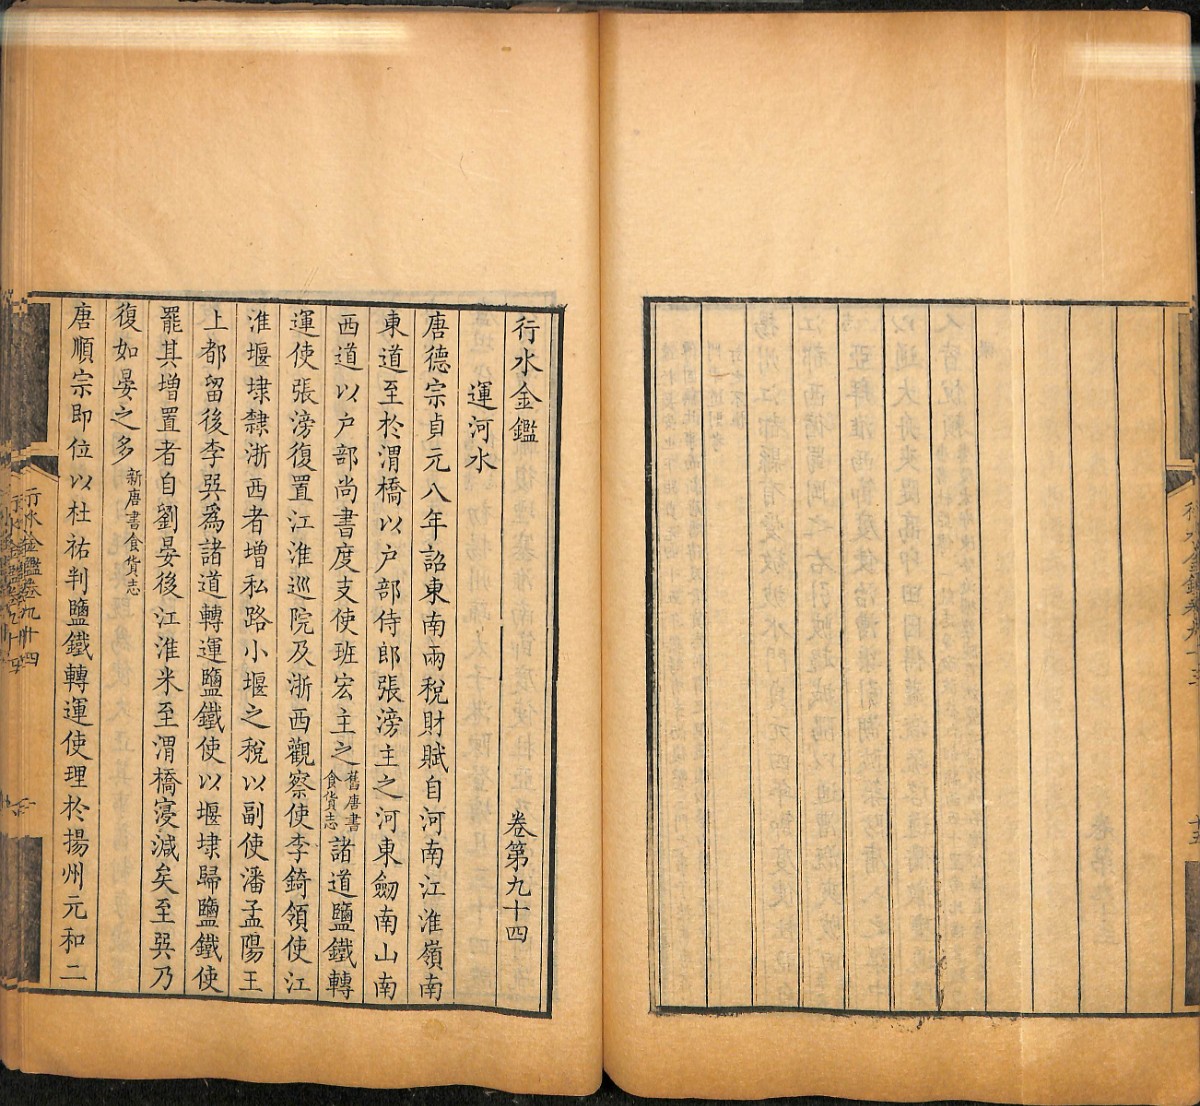 行水金鑑　卷第九十四
運河水
唐德宗貞元八年詔東南兩稅財賦自河南江淮嶺南
東道至於渭橋以户部侍郎張滂主之河東劒南山南
西道以户部尚書度支使班宏主之舊唐書食貨志諸道鹽鐵轉
運使張滂復置江淮巡院及浙西觀察使李錡領使江
淮堰埭隸浙西者增私路小堰之稅以副使潘孟陽王
上都留後李巽爲諸道轉運鹽鐵使以堰埭歸鹽鐵使
罷其增置者自劉晏後江淮米至渭橋寖減矣至巽乃
復如晏之多新唐書食貨志
唐順宗即位以杜祐判鹽鐵轉運使理於揚州元和二
行水金鑑卷九十四